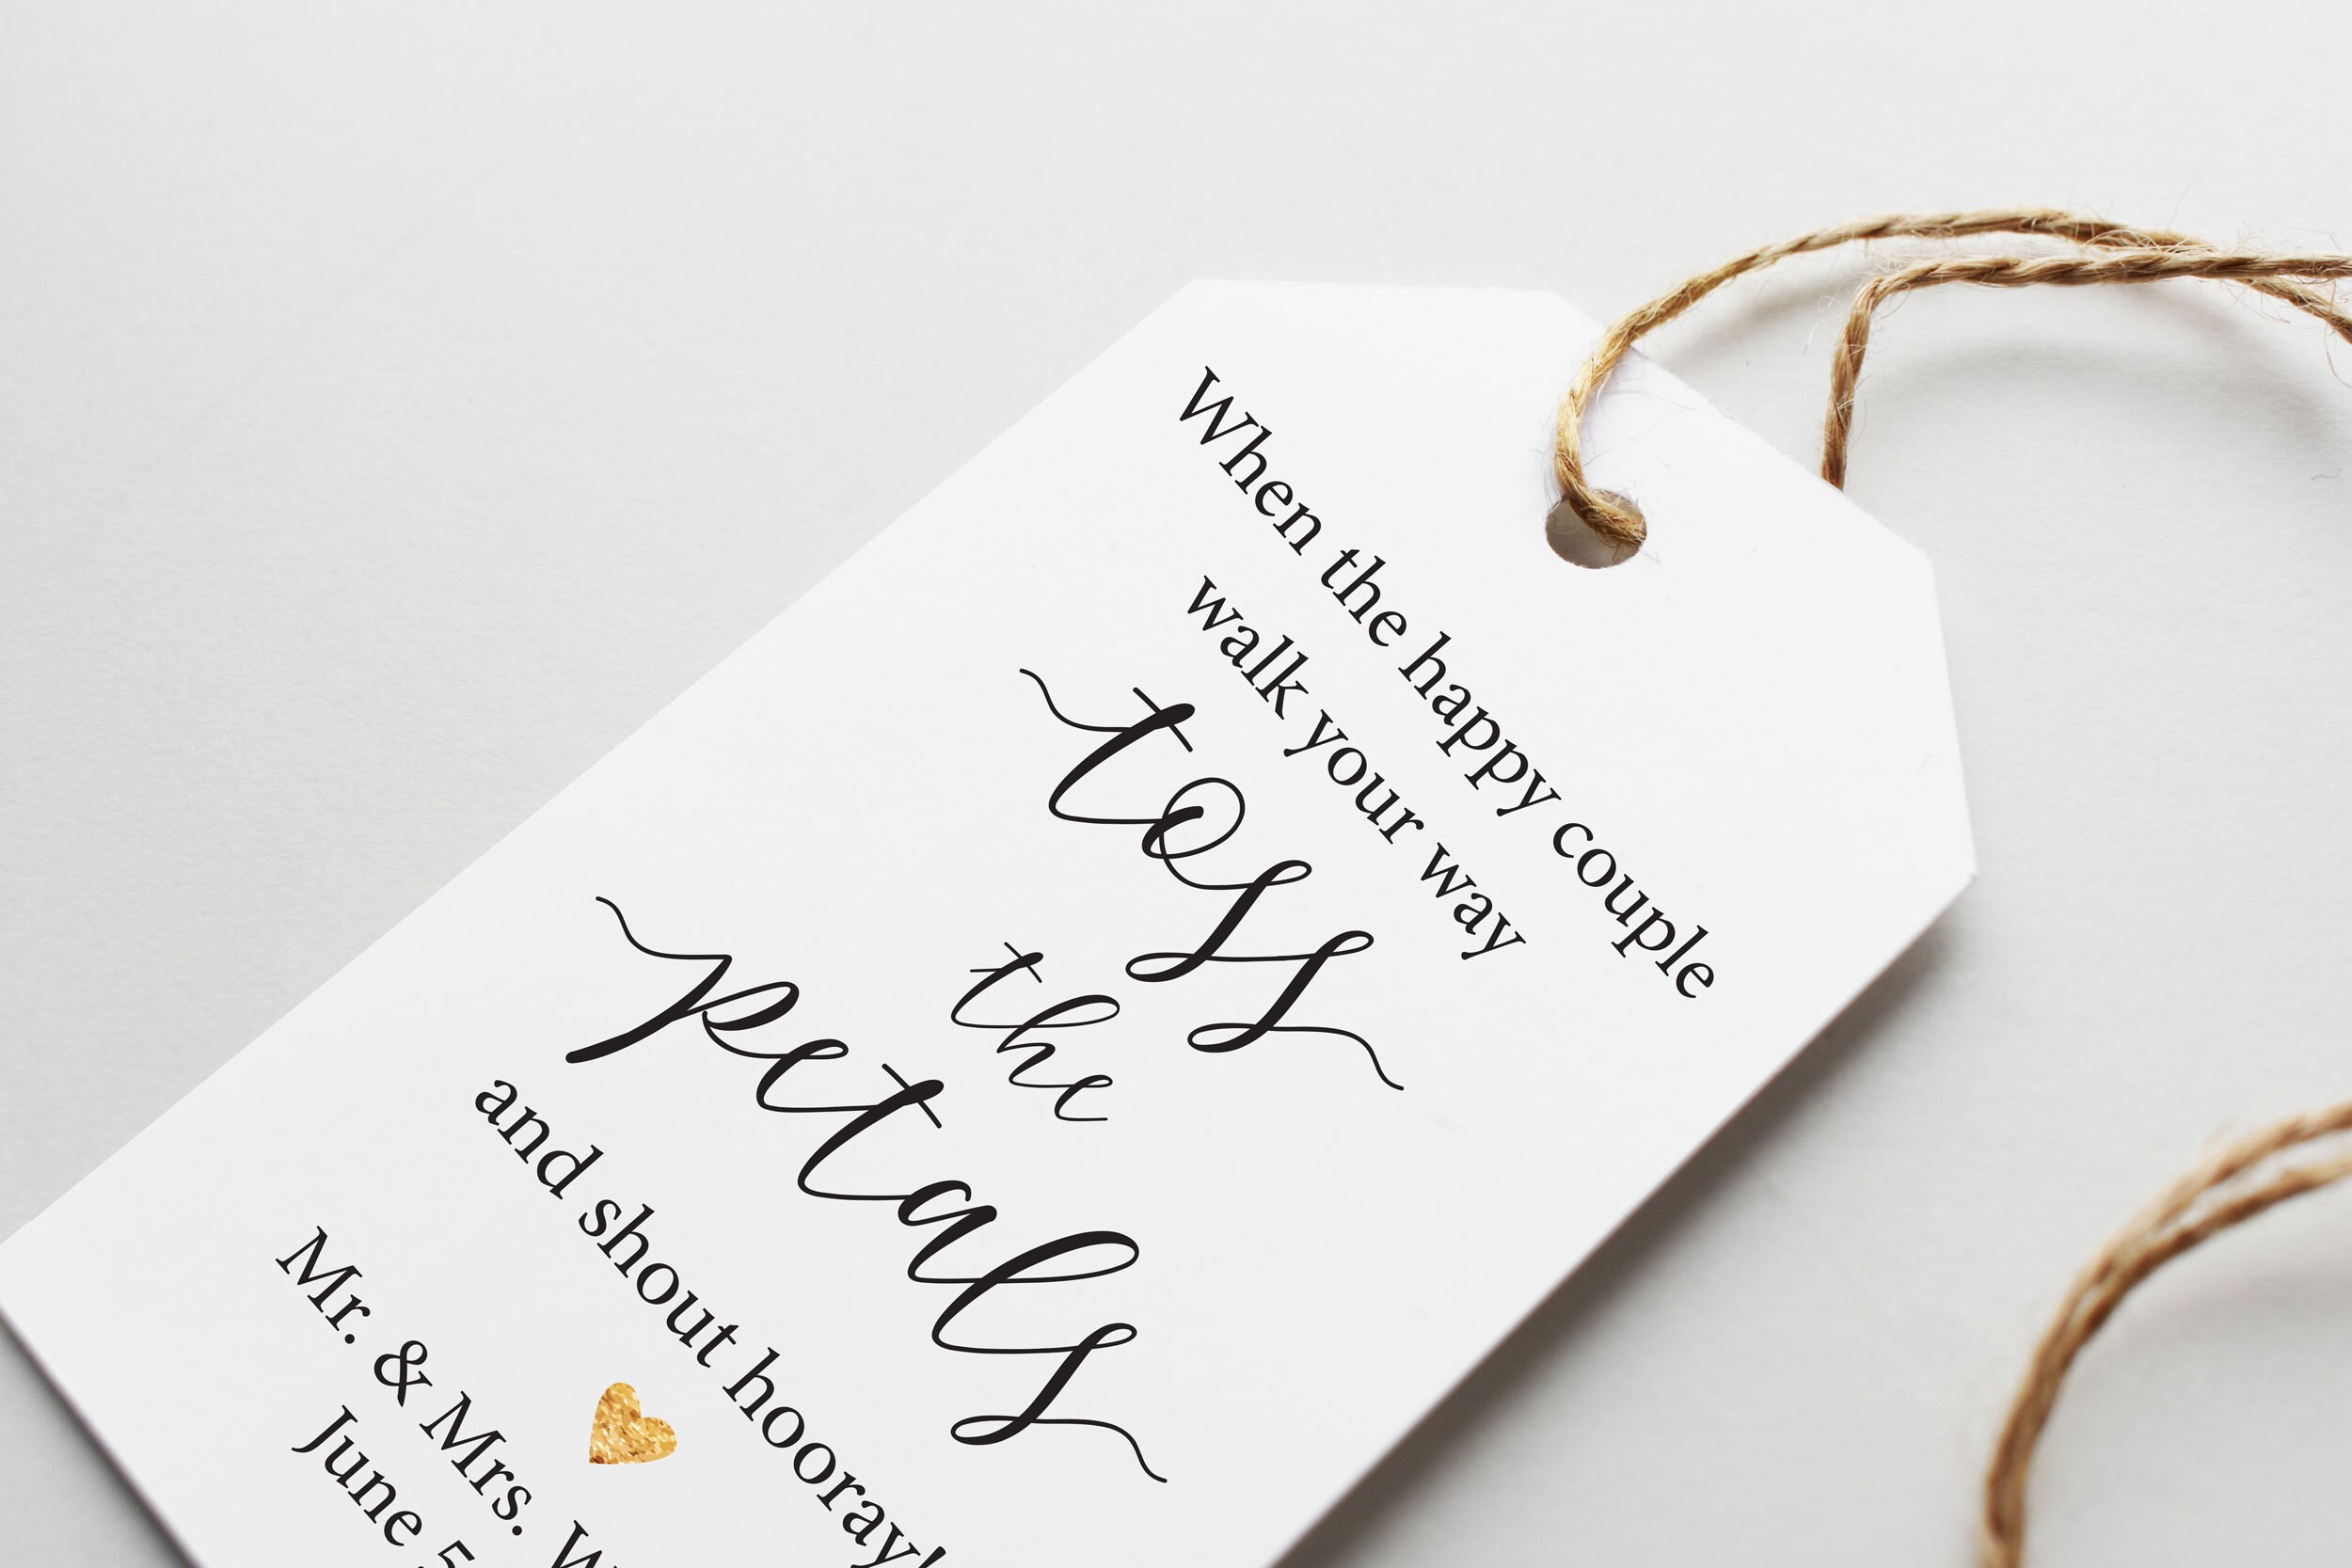 When the happy couple
walk your way
toss
the
petals
and shout hooray!
Mr. & Mrs.
June 5